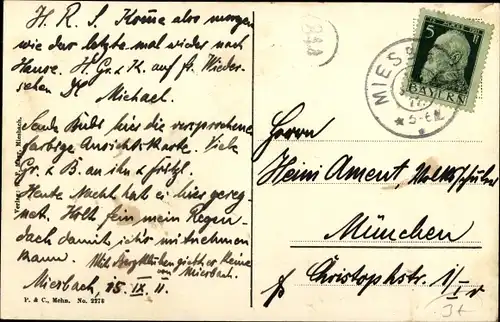 H. R. S. Komme also morgen
wie das letzte mal wieder nach
Hause. H. Gr. u. K. auf fr. Wieder-
sehen
Michael.
Sende Bubi hier die versprochene
farbige Ansichtskarte. Viele
Gr. u. B. an ihn u. Fritzl.
Heute Nacht hat es hier gereg-
net. Holt fein mein Regen
dach damit ich's mitnehmen
kann. Mit Bergblühen giebt es keine
von Miesbach.
Miesbach, 15. IX. 11.
P. & C., Mchn. No. 2276
MIESB
5-6N
5
BAYERN
Herrn
Heini Ament, Volksschüler
München
Christophstr. 1/I r